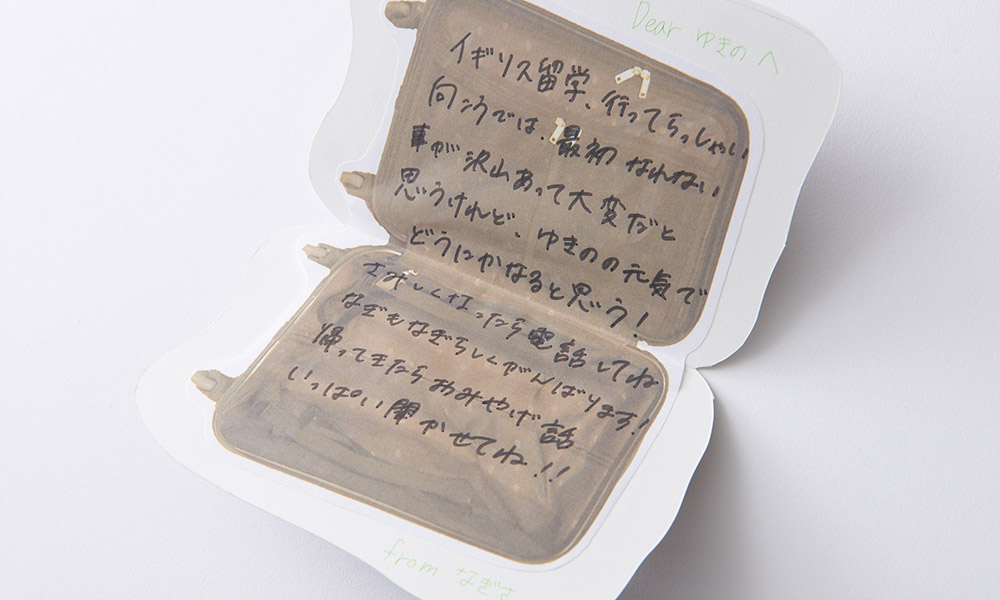 Dear ゆきのへ
イギリス留学、行ってらっしゃい
向こうでは、最初 なれない
事が 沢山あって 大変だと
思うけれど、ゆきのの元気で
どうにかなると思う!
さみしくなったら電話してね
なぎもなぎらしくがんばります!
帰ってきたらおみやげ話
いっぱい聞かせてね!!
from なぎさ